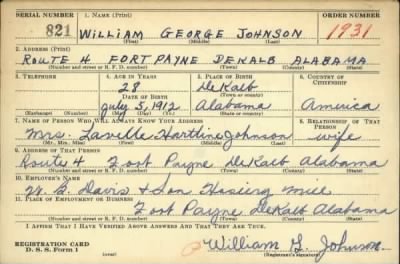 SERIAL NUMBER 1. NAME (Print) ORDER NUMBER
821 WILLIAM GEORGE JOHNSON 1931
(First) (Middle) (Last)
2. ADDRESS (Print)
ROUTE 4 FORT PAYNE DEKALB ALABAMA
(Number and street or R. F. D. number) (Town) (County) (State)
3. TELEPHONE 4. AGE IN YEARS 5. PLACE OF BIRTH 6. COUNTRY OF CITIZENSHIP
28 DeKalb
DATE OF BIRTH (Town or county)
July 5, 1912 Alabama America
(Exchange) (Number) (Mo.) (Day) (Yr.) (State or country)
7. NAME OF PERSON WHO WILL ALWAYS KNOW YOUR ADDRESS 8. RELATIONSHIP OF THAT PERSON
Mrs. Lavelle Hartline Johnson wife
(Mr., Mrs., Miss) (First) (Middle) (Last)
9. ADDRESS OF THAT PERSON
Route 4 Fort Payne DeKalb Alabama
(Number and street or R. F. D. number) (Town) (County) (State)
10. EMPLOYER'S NAME
W. B. Davis & Son Hosiery Mill
11. PLACE OF EMPLOYMENT OR BUSINESS
Fort Payne DeKalb Alabama
(Number and street or R. F. D. number) (Town) (County) (State)
I AFFIRM THAT I HAVE VERIFIED ABOVE ANSWERS AND THAT THEY ARE TRUE.
REGISTRATION CARD
D. S. S. Form 1
William G. Johnson
(Registrant's signature)